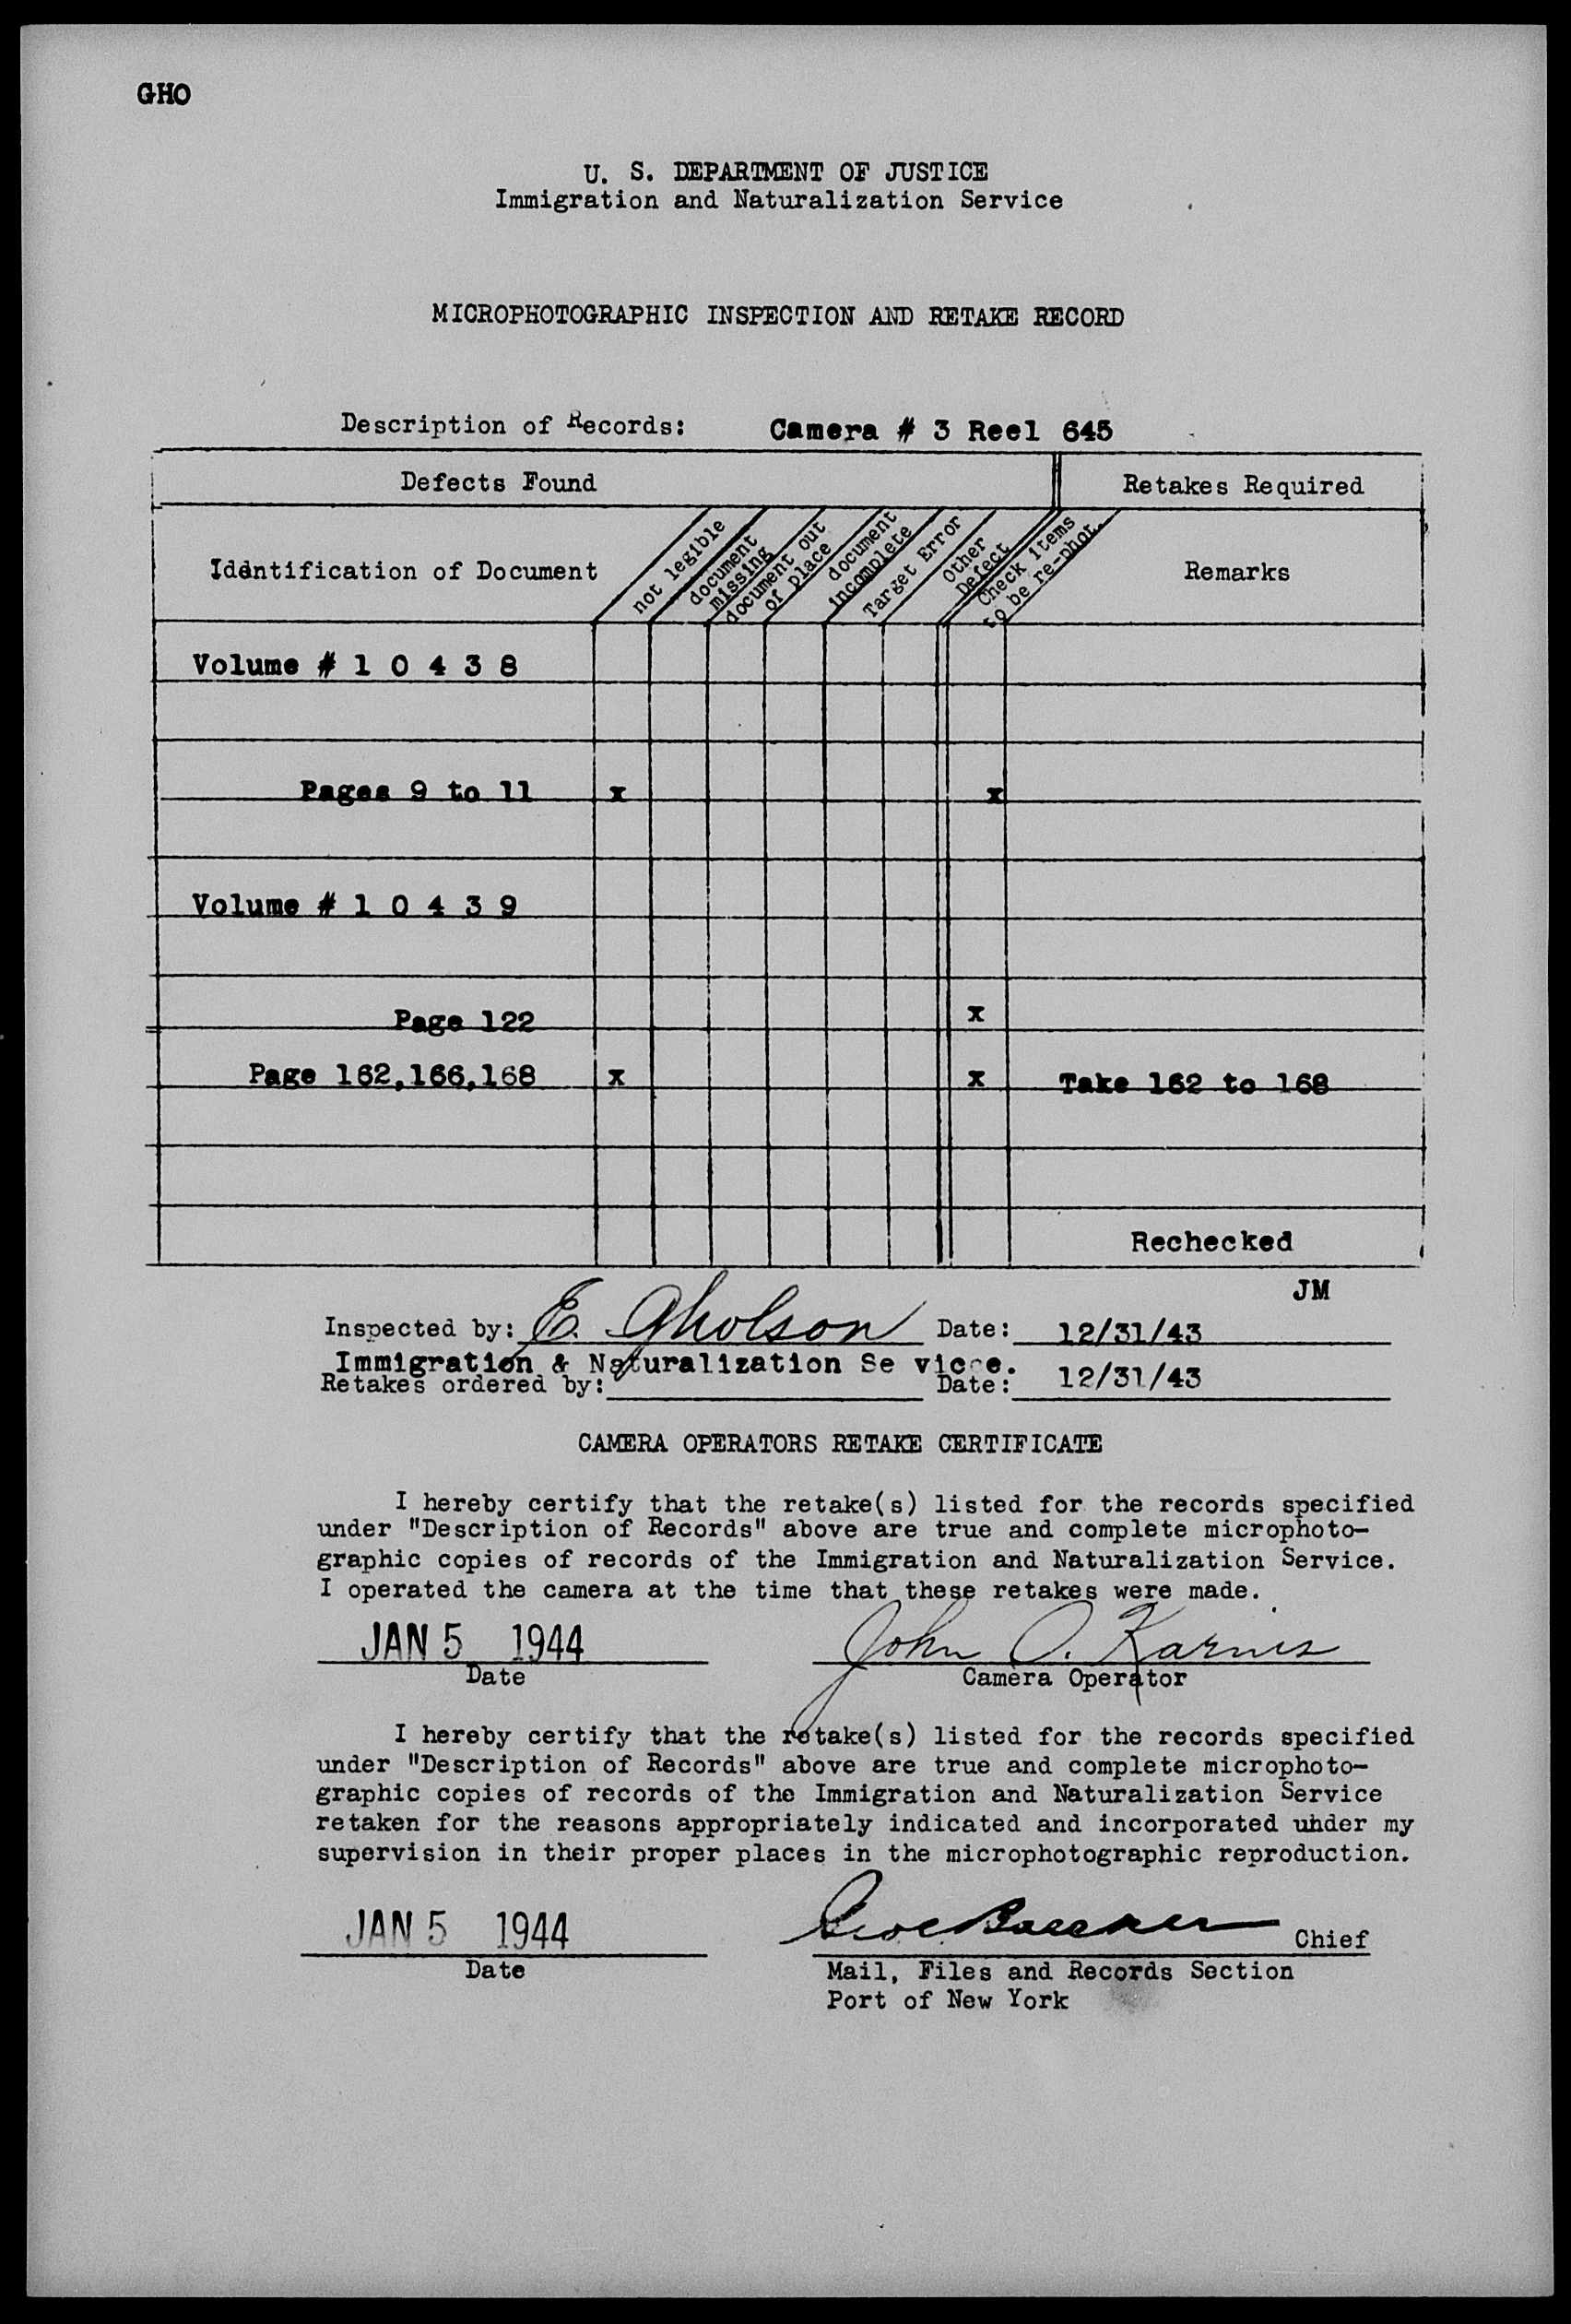 GHO
U. S. DEPARTMENT OF JUSTICE
Immigration and Naturalization Service
MICROPHOTOGRAPHIC INSPECTION AND RETAKE RECORD
Description of Records: Camera # 3 Reel 645
Defects Found Retakes Required
Identification of Document
not legible
document missing
document out of place
document incomplete
Target Error
Other Defect
Check items to be re-phot.
Remarks
Volume # 1 0 4 3 8
Pages 9 to 11 x x
Volume # 1 0 4 3 9
Page 122 x
Page 162,166,168 x x Take 162 to 168
Rechecked
JM
Inspected by: E. Gholson Date: 12/31/43
Immigration & Naturalization Se vice.
Retakes ordered by: Date: 12/31/43
CAMERA OPERATORS RETAKE CERTIFICATE
I hereby certify that the retake(s) listed for the records specified
under "Description of Records" above are true and complete microphoto-
graphic copies of records of the Immigration and Naturalization Service.
I operated the camera at the time that these retakes were made.
JAN 5 1944 John O. Karnis
Date Camera Operator
I hereby certify that the retake(s) listed for the records specified
under "Description of Records" above are true and complete microphoto-
graphic copies of records of the Immigration and Naturalization Service
retaken for the reasons appropriately indicated and incorporated under my
supervision in their proper places in the microphotographic reproduction.
JAN 5 1944 Chief
Date Mail, Files and Records Section
Port of New York